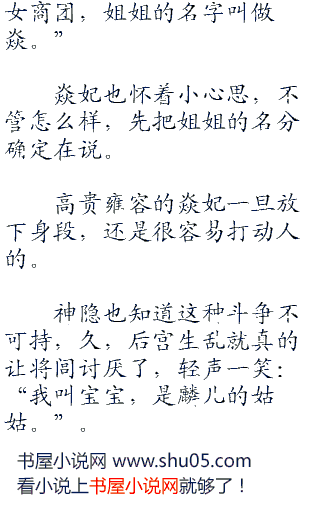 女商团，姐姐的名字叫做
焱。”
焱妃也怀着小心思，不
管怎么样，先把姐姐的名分
确定在说。
高贵雍容的焱妃一旦放
下身段，还是很容易打动人
的。
神隐也知道这种斗争不
可持，久，后宫生乱就真的
让将闾讨厌了，轻声一笑：
“我叫宝宝，是麟儿的姑
姑。”。
书屋小说网 www.shu05.com
看小说上书屋小说网就够了！